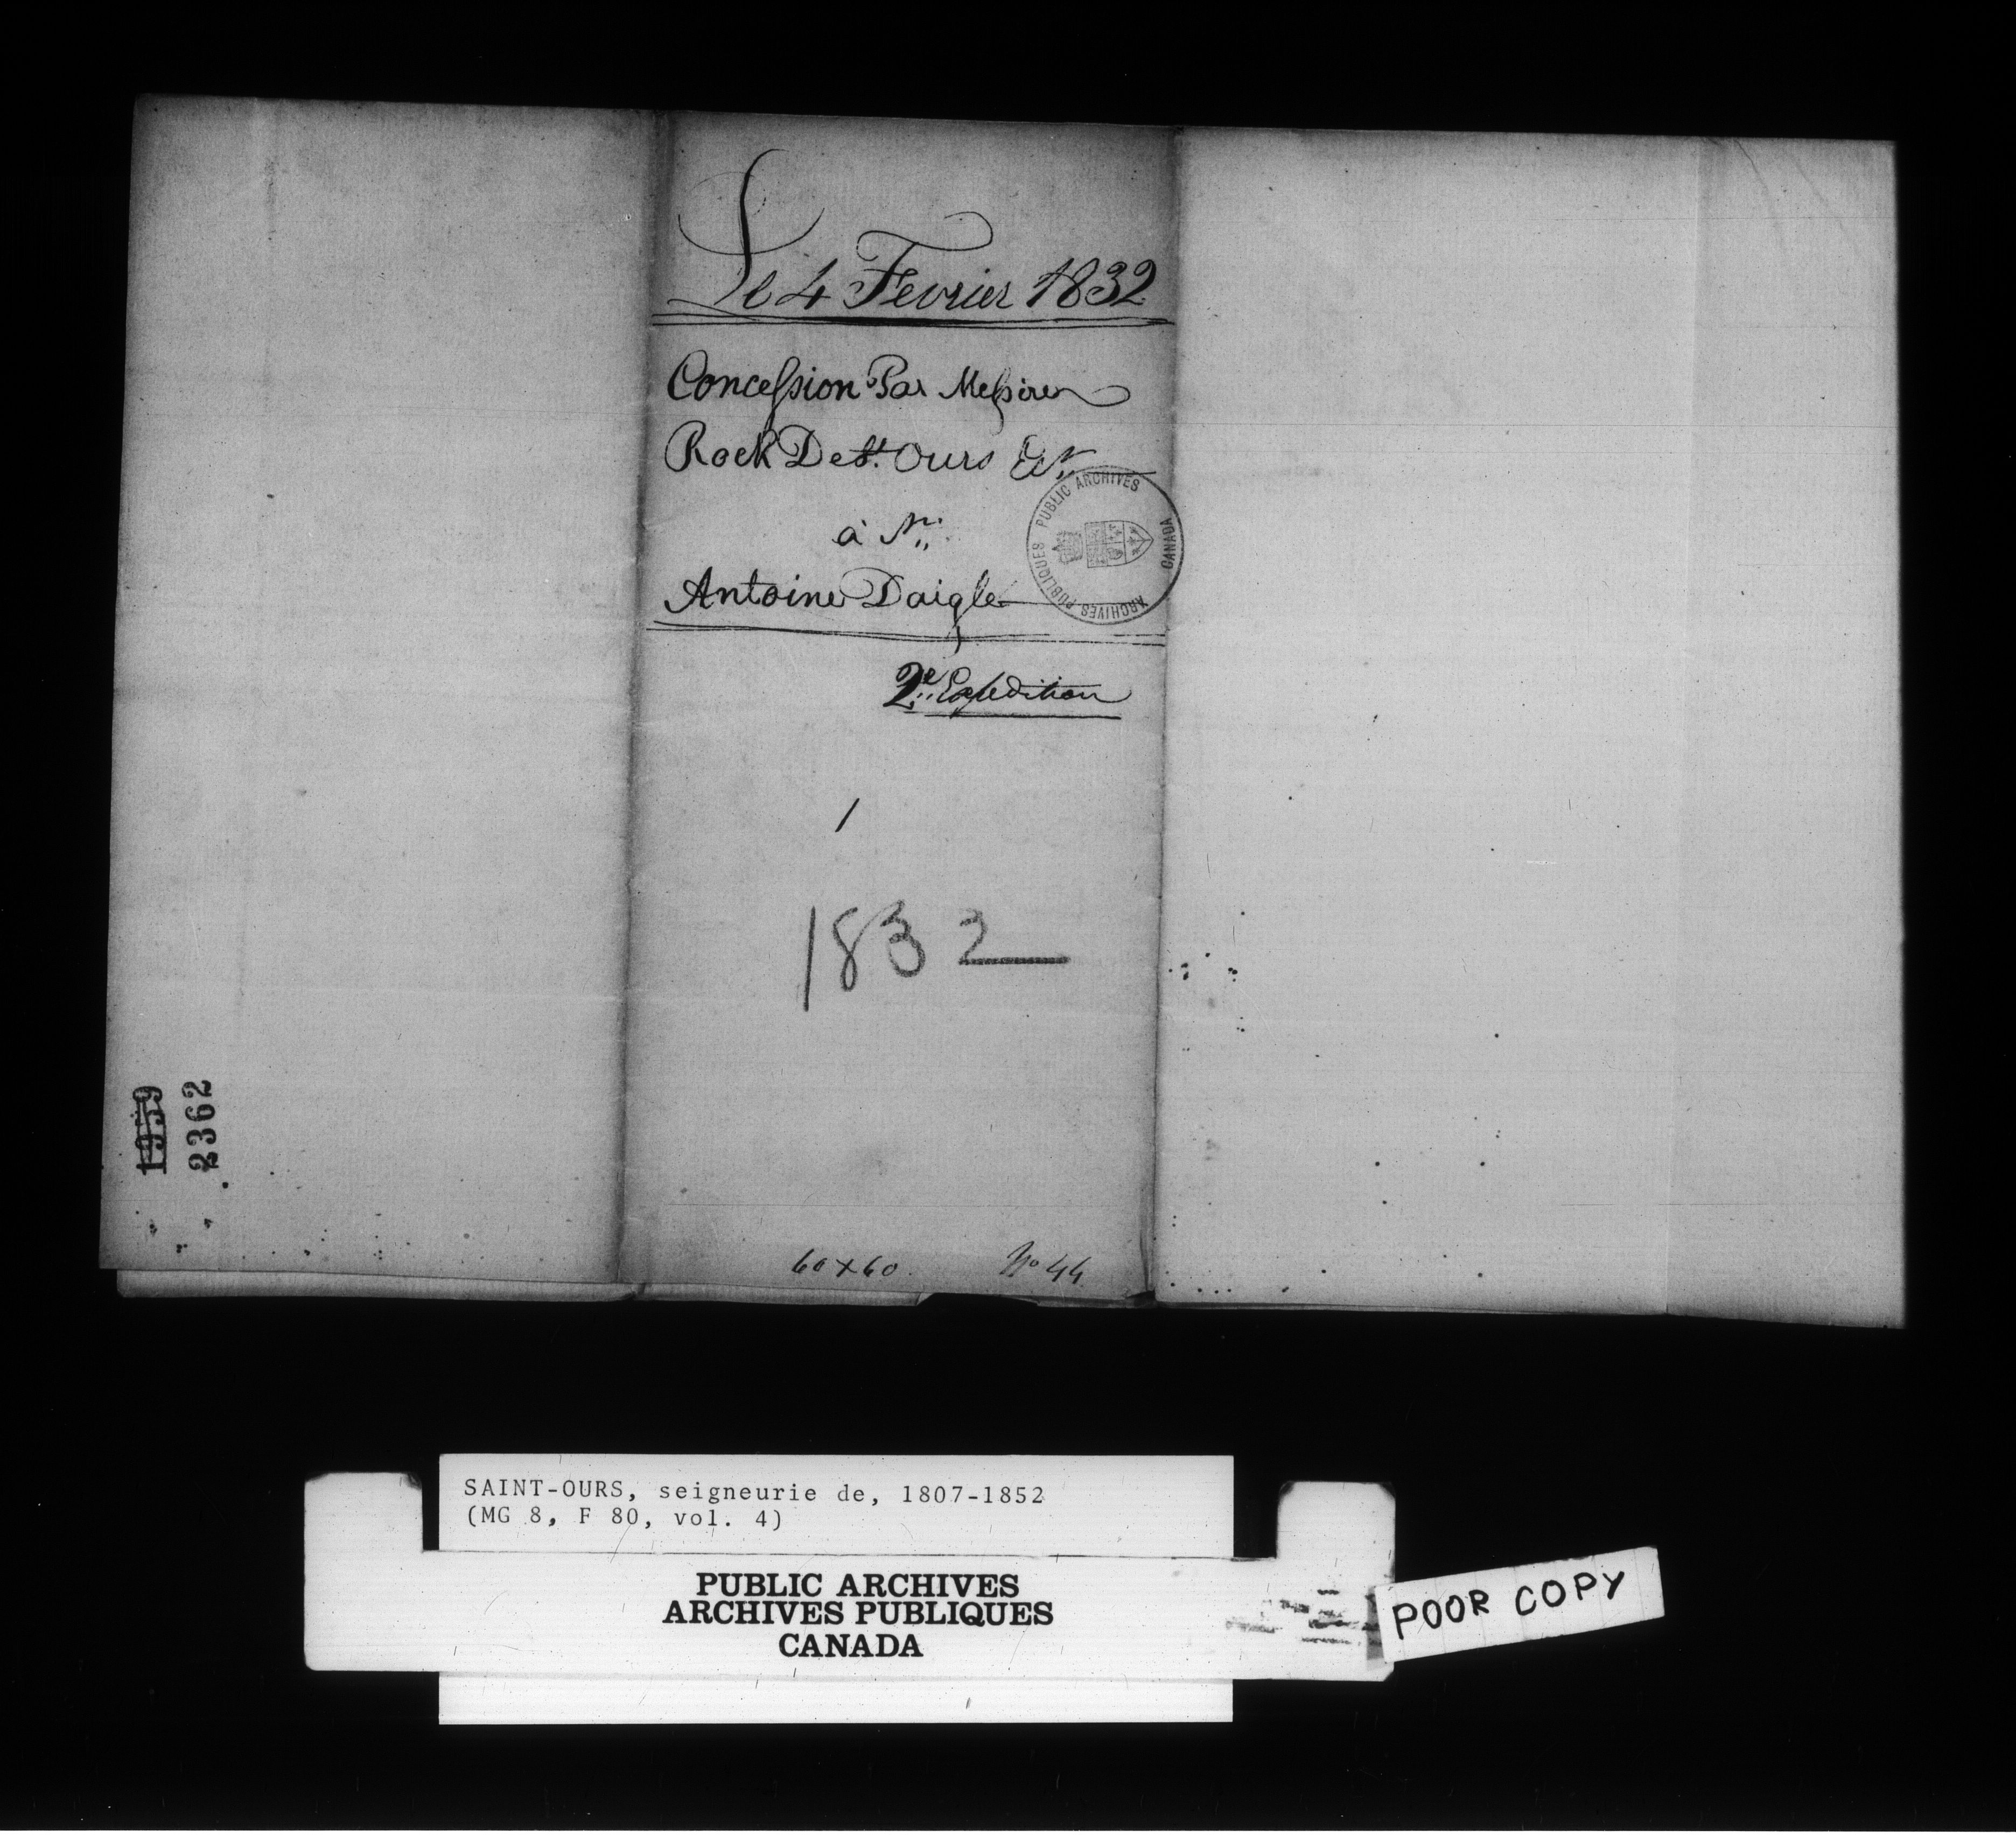 Le 4 Fevrier 1832
Concession Par Messire
Rock De St. Ours Ecr
à Sr.
Antoine Daigle
PUBLIC ARCHIVES
ARCHIVES PUBLIQUES
CANADA
2e Expedition
1
1832
2362
60 x 60.
No 44
SAINT-OURS, seigneurie de, 1807-1852
(MG 8, F 80, vol. 4)
PUBLIC ARCHIVES
ARCHIVES PUBLIQUES
CANADA
POOR COPY